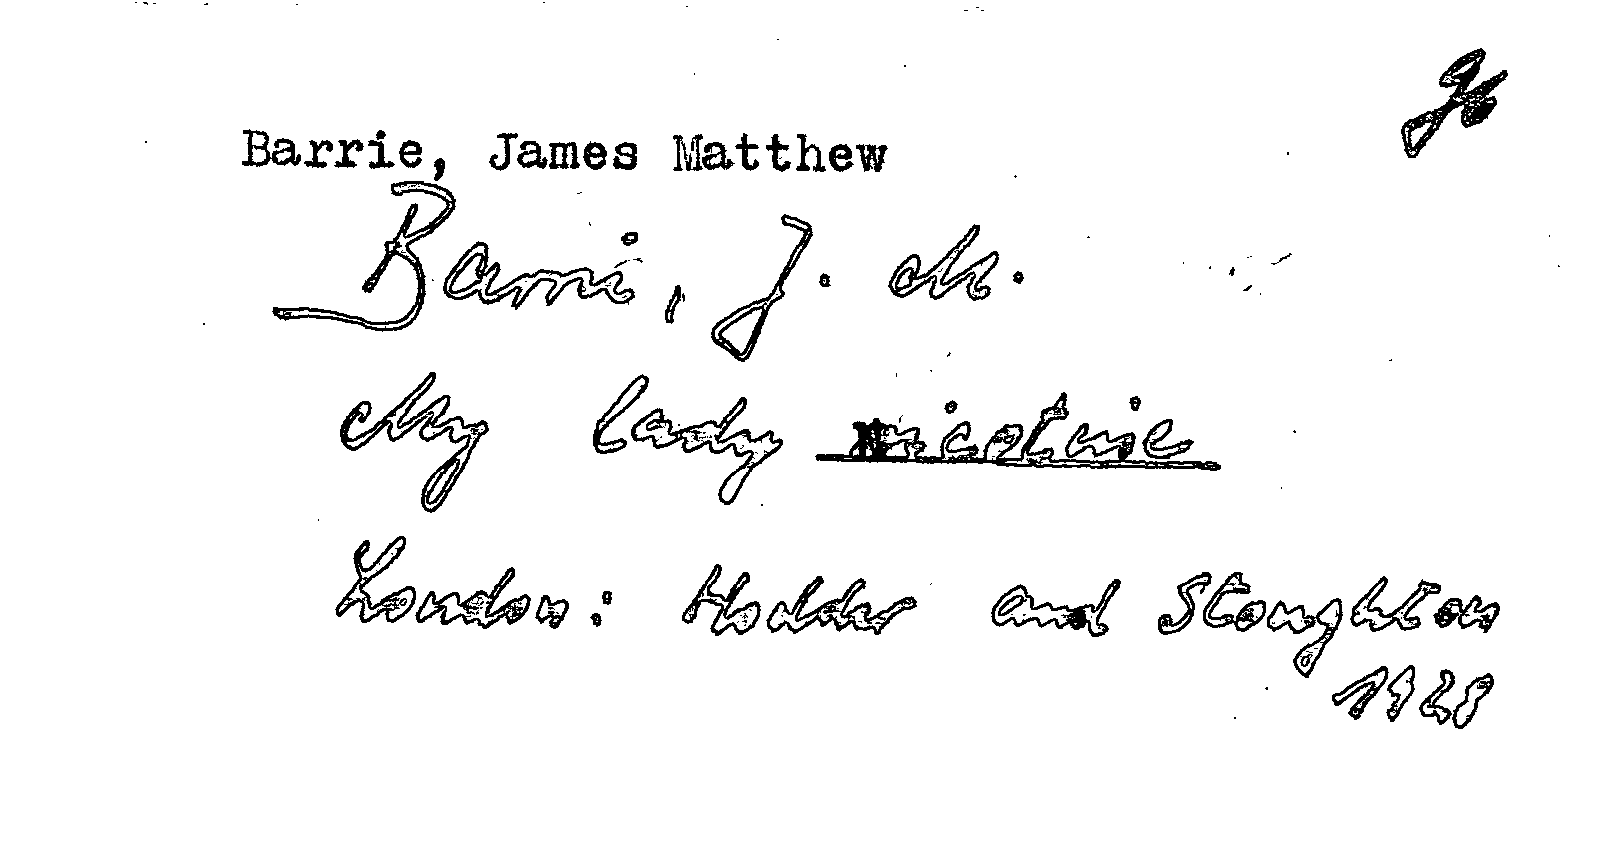 Barrie, James Matthew
Barrie, J. M.
My lady nicotine
London: Hodder and Stoughton
1928